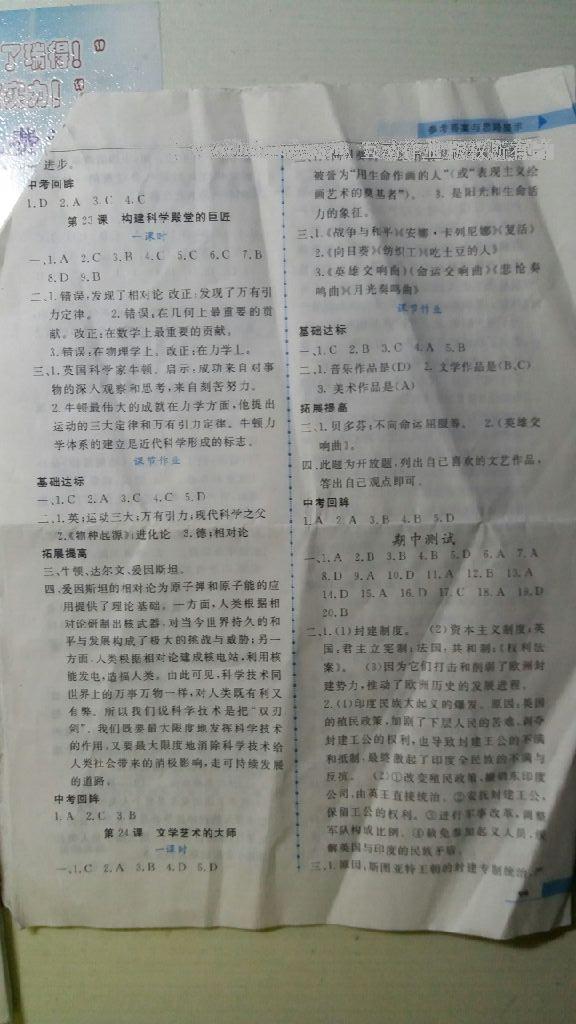 了瑞得！”
实力！”
参考答案与思路提示
进步。
中考回眸
1.D 2.A 3.C 4.C
第23课 构建科学殿堂的巨匠
一课时
一、1.A 2.C 3.B 4.C 5.C 6.C 7.B
8.D 9.C
二、1.错误：发现了相对论 改正：发现了万有引
力定律。 2.错误：在几何上最重要的贡
献。改正：在数学上最重要的贡献。
3.错误：在物理学上。改正：在力学上。
三、1.英国科学家牛顿。启示：成功来自对事
物的深入观察和思考，来自刻苦努力。
2.牛顿最伟大的成就在力学方面，他提出
运动的三大定律和万有引力定律。牛顿力
学体系的建立是近代科学形成的标志。
课节作业
基础达标
一、1.C 2.A 3.C 4.C 5.D
二、1.英；运动三大；万有引力；现代科学之父
2.《物种起源》；进化论 3.德；相对论
拓展提高
三、牛顿、达尔文、爱因斯坦。
四、爱因斯坦的相对论为原子弹和原子能的应
用提供了理论基础。一方面，人类根据相
对论研制出核武器，对当今世界持久的和
平与发展构成了极大的挑战与威胁；另一
方面，人类根据相对论建成核电站，利用核
能发电，造福人类。由此可见，科学技术同
世界上的万事万物一样，对人类既有利又
有弊。所以我们说科学技术是把“双刃
剑”。我们既要最大限度地发挥科学技术
的作用，又要最大限度地消除科学技术给
人类社会带来的消极影响，走可持续发展
的道路。
中考回眸
1.A 2.C 3.B
第24课 文学艺术的大师
一课时
一、1.C 2.A 3.B 4.D 5.D
被誉为“用生命作画的人”（或“表现主义绘
画艺术的奠基者”）。 3.是阳光和生命活
力的象征。
三、1.《战争与和平》《安娜·卡列尼娜》《复活》
2.《向日葵》《纺织工》《吃土豆的人》
3.《英雄交响曲》《命运交响曲》《悲怆奏
鸣曲》《月光奏鸣曲》
课节作业
基础达标
一、1.C 2.B 3.C 4.A 5.B
二、1.音乐作品是（D） 2.文学作品是（B、C）
3.美术作品是（A）
拓展提高
三、1.贝多芬；不向命运屈服等。 2.《英雄交
响曲》。
四、此题为开放题，列出自己喜欢的文艺作品，
答出自己观点即可。
中考回眸
1.A 2.A 3.B 4.B 5.D
期中测试
一、1.A 2.B 3.B 4.B 5.D 6.A 7.A
8.D 9.A 10.D 11.A 12.B 13.A
14.D 15.A 16.D 17.C 18.A 19.D
20.B
二、1.（1）封建制度。 （2）资本主义制度；英
国，君主立宪制；法国，共和制；《权利法
案》。 （3）因为它们打击和削弱了欧洲封
建势力，推动了欧洲历史的发展进程。
2.（1）印度民族大起义的爆发。原因：英国
的殖民政策，加剧了下层人民的苦难，剥夺
封建王公的权利，也导致封建王公的不满
和抵制，最终激起了印度全民族的不满与
反抗。 （2）①改变殖民政策，撤销东印度
公司，由英王直接统治。②安抚封建王公，
保留王公的权利。③进行军事改革，调整
军队构成比例。④赦免参加起义人员，缓
解英国与印度的民族矛盾。
三、1.原因，斯图亚特王朝的封建专制统治，严